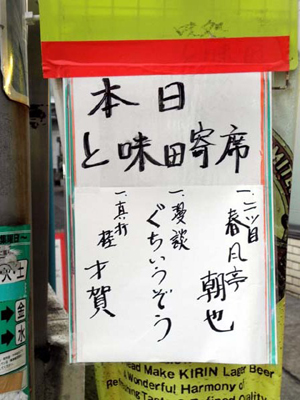 本日
と味田寄席
一、二ツ目
春風亭 朝也
一、漫談
ぐちいうぞう
一、真打
桂 才賀
火・土
➡金
➡水
Make KIRIN Lager Beer
a Wonderful Harmony of